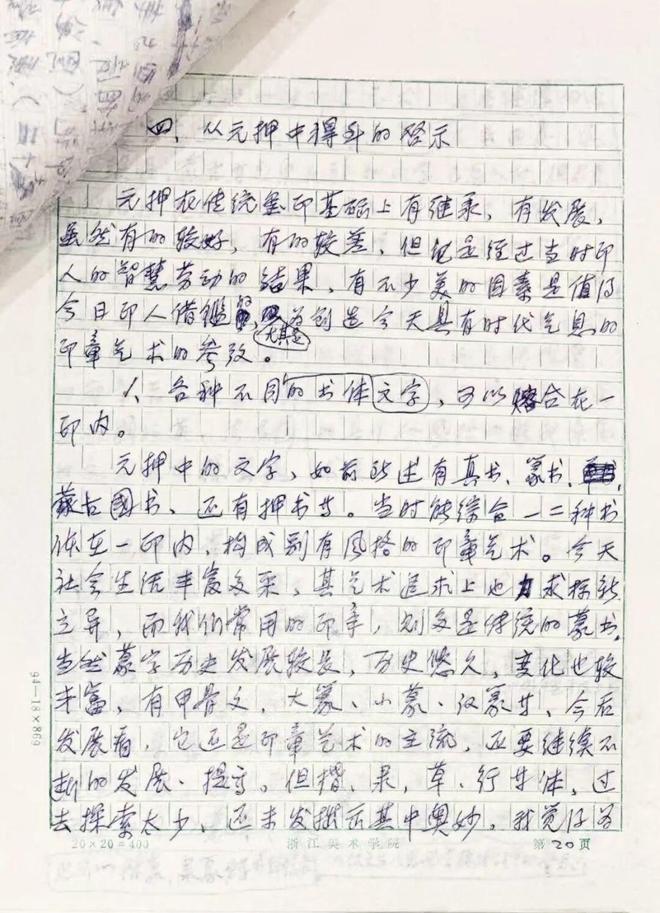 四、从元押中得到的启示
元押在传统玺印基础上有继承，有发展，
虽然有的较好，有的较差，但都是经过当时印
人的智慧劳动的结果，有不少美的因素是值得
今日印人借鑑的，尤其是为创造今天具有时代气息的
印章艺术的参考。
1、各种不同的书体文字，可以熔合在一
印内。
元押中的文字，如前所述有真书、篆书、
蒙古國书、还有押书等。当时能综合一二种书
体在一印内，构成别有风格的印章艺术。今天
社会生活丰富多采，其艺术追求上也力求标新
立异，而我们常用的印章，则又是传统的篆书，
当然篆字历史发展较长，历史悠久，变化也较
丰富，有甲骨文、大篆、小篆、汉篆等，今后
发展看，它还是印章艺术的主流，还要继续不
断的发展、提高。但楷、隶，草、行等体，过
去探索太少、还未发掘出其中奥妙，我觉得为
94—18×869
20×20=400 浙江美术学院 第20页